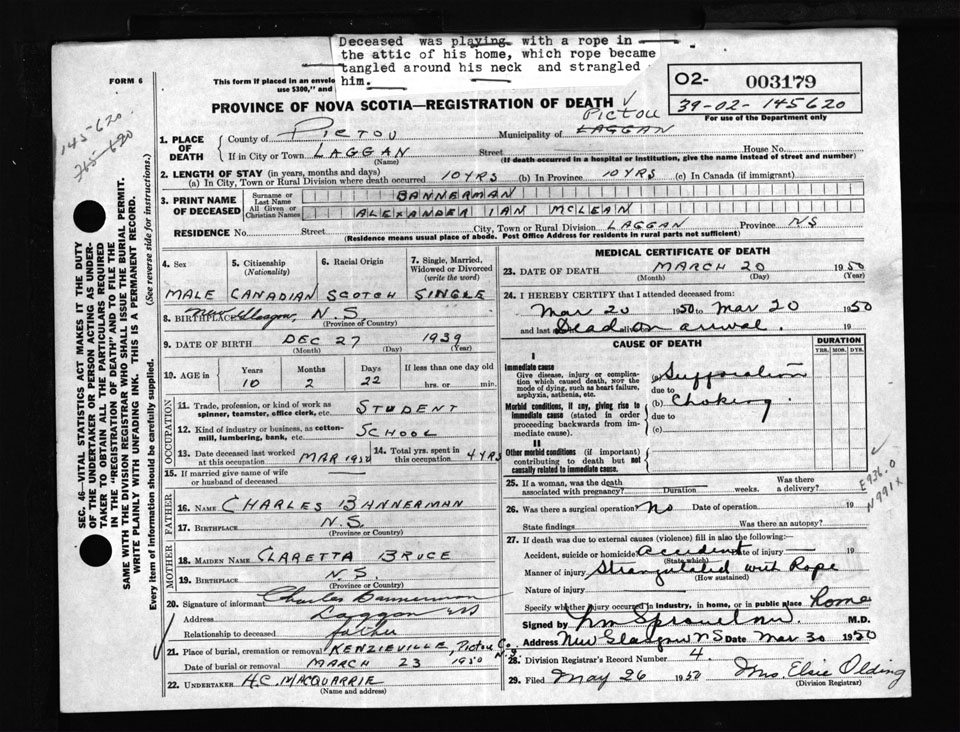 Deceased was playing with a rope in
the attic of his home, which rope became
tangled around his neck and strangled
him.
FORM 6
This form if placed in an envelo
use $300," and
O2- 003179
39-02-145620
For use of the Department only
PROVINCE OF NOVA SCOTIA—REGISTRATION OF DEATH
145620
SEC. 46—VITAL STATISTICS ACT MAKES IT THE DUTY
OF THE UNDERTAKER OR PERSON ACTING AS UNDER-
TAKER TO OBTAIN ALL THE PARTICULARS REQUIRED
IN THE "REGISTRATION OF DEATH" AND TO FILE THE
SAME WITH THE DIVISION REGISTRAR WHO SHALL ISSUE THE BURIAL PERMIT.
WRITE PLAINLY WITH UNFADING INK. THIS IS A PERMANENT RECORD.
Every item of information should be carefully supplied. (See reverse side for instructions.)
1. PLACE OF DEATH
County of PICTOU Municipality of LAGGAN PICTOU
If in City or Town LAGGAN Street House No.
(Name) (If death occurred in a hospital or institution, give the name instead of street and number)
2. LENGTH OF STAY (in years, months and days)
(a) In City, Town or Rural Division where death occurred 10 YRS (b) In Province 10 YRS (c) In Canada (if immigrant)
3. PRINT NAME OF DECEASED
Surname or Last Name BANNERMAN
All Given or Christian Names ALEXANDER IAN MCLEAN
RESIDENCE No. Street City, Town or Rural Division LAGGAN Province NS
(Residence means usual place of abode. Post Office Address for residents in rural parts not sufficient)
4. Sex 5. Citizenship (Nationality) 6. Racial Origin 7. Single, Married, Widowed or Divorced (write the word)
MALE CANADIAN SCOTCH SINGLE
8. BIRTHPLACE New Glasgow, N.S.
(Province or Country)
9. DATE OF BIRTH DEC 27 1939
(Month) (Day) (Year)
10. AGE in Years Months Days If less than one day old
10 2 22 hrs. or min.
OCCUPATION
11. Trade, profession, or kind of work as spinner, teamster, office clerk, etc. STUDENT
12. Kind of industry or business, as cotton-mill, lumbering, bank, etc. SCHOOL
13. Date deceased last worked at this occupation MAR 1950 14. Total yrs. spent in this occupation 4 YRS
15. If married give name of wife or husband of deceased
FATHER
16. NAME CHARLES BANNERMAN
17. BIRTHPLACE N.S.
(Province or Country)
MOTHER
18. MAIDEN NAME CLARETTA BRUCE
19. BIRTHPLACE N.S.
(Province or Country)
20. Signature of informant Charles Bannerman
Address Laggan NS
Relationship to deceased father
21. Place of burial, cremation or removal KENZIEVILLE, Pictou Co. N.S.
Date of burial or removal MARCH 23 1950
22. UNDERTAKER H.C. MACQUARRIE
(Name and address)
MEDICAL CERTIFICATE OF DEATH
23. DATE OF DEATH MARCH 20 1950
(Month) (Day) (Year)
24. I HEREBY CERTIFY that I attended deceased from:
Mar 20 1950 to Mar 20 1950
and last Dead on arrival. 19
CAUSE OF DEATH DURATION
YRS. MOS. DYS.
I
Immediate cause
Give disease, injury or complication which caused death, NOT the mode of dying, such as heart failure, asphyxia, asthenia, etc.
(a) Suffocation
due to
Morbid conditions, if any, giving rise to immediate cause (stated in order proceeding backwards from immediate cause).
(b) Choking
due to
(c)
II
Other morbid conditions (if important) contributing to death but not causally related to immediate cause.
E936.0
N991X
25. If a woman, was the death associated with pregnancy? Duration weeks. Was there a delivery?
26. Was there a surgical operation? No Date of operation 19
State findings Was there an autopsy?
27. If death was due to external causes (violence) fill in also the following:
Accident, suicide or homicide? accident Date of injury 19
(State which)
Manner of injury Strangulated with Rope
(How sustained)
Nature of injury
Specify whether injury occurred in industry, in home, or in public place home
Signed by M.D.
Address New Glasgow NS Date Mar 30 1950
28. Division Registrar's Record Number 4.
29. Filed May 26 1950 Mrs. Elsie Olding
(Division Registrar)